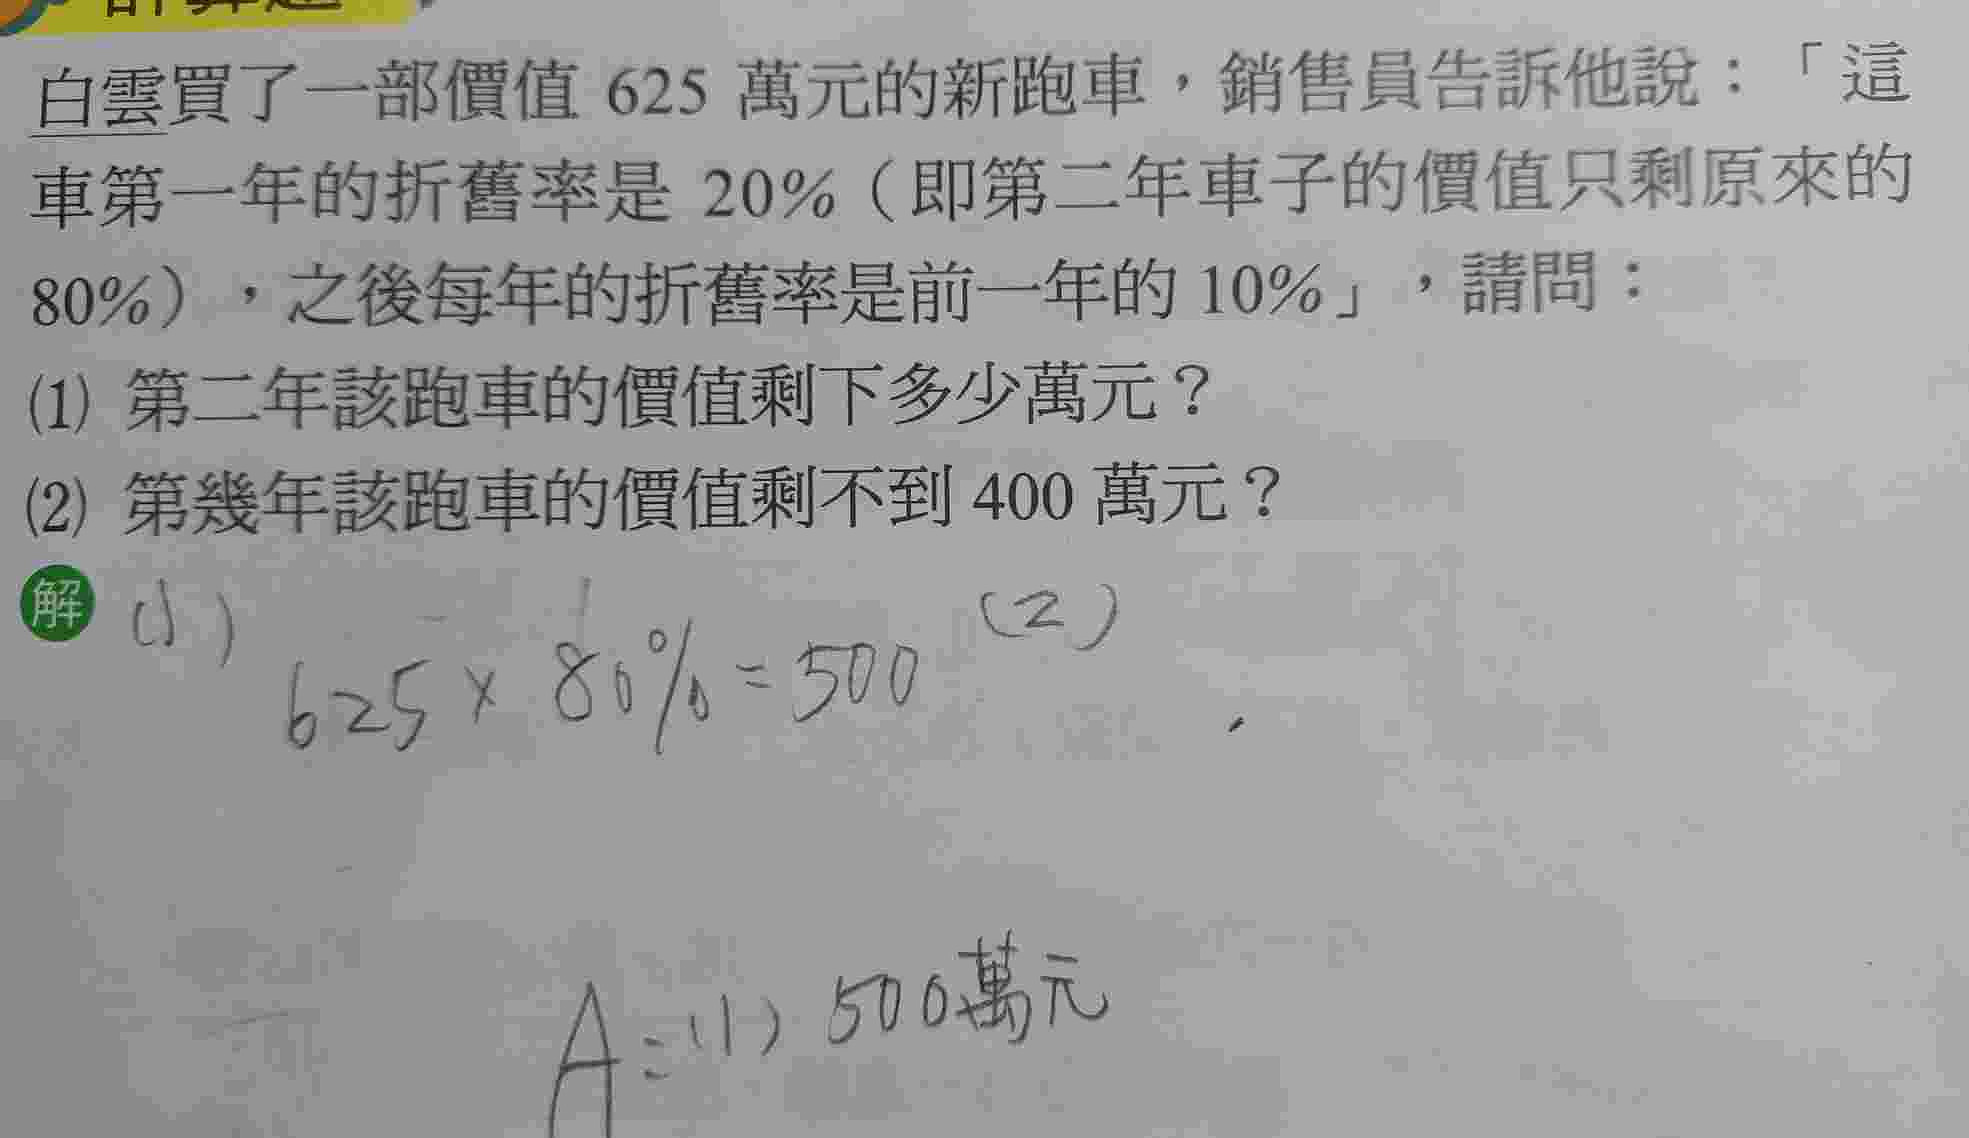 白雲買了一部價值 625 萬元的新跑車，銷售員告訴他說：「這
車第一年的折舊率是 20%（即第二年車子的價值只剩原來的
80%），之後每年的折舊率是前一年的 10%」，請問：
(1) 第二年該跑車的價值剩下多少萬元？
(2) 第幾年該跑車的價值剩不到 400 萬元？
解 (1) (2)
625 × 80% = 500
A：(1) 500萬元